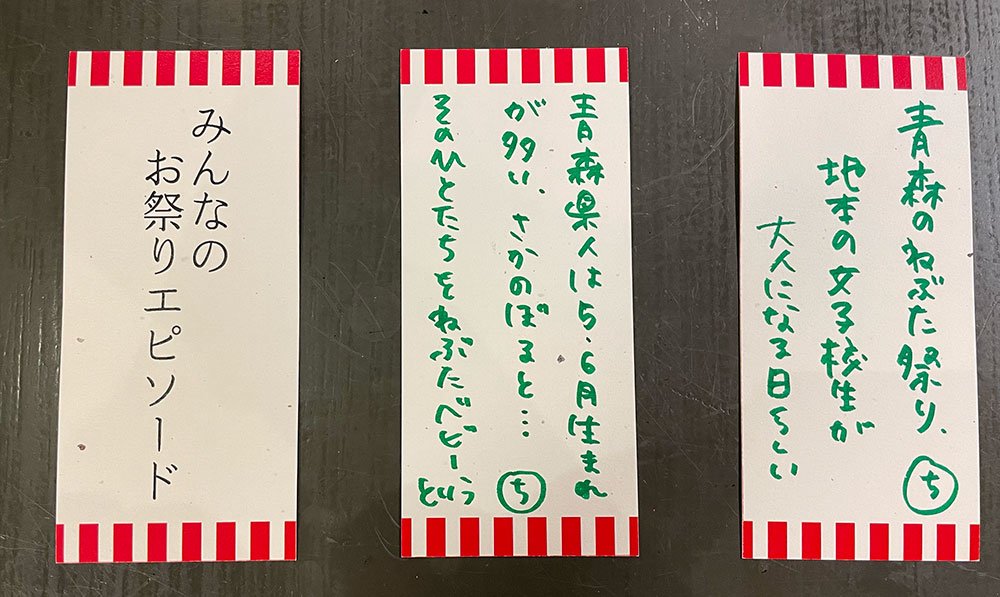 みんなの
お祭りエピソード
青森県人は5、6月生まれ
が多い、さかのぼると… ち
そのひとたちをねぶたベビーという
青森のねぶた祭り、
地本の女子校生が
大人になる日らしい
ち